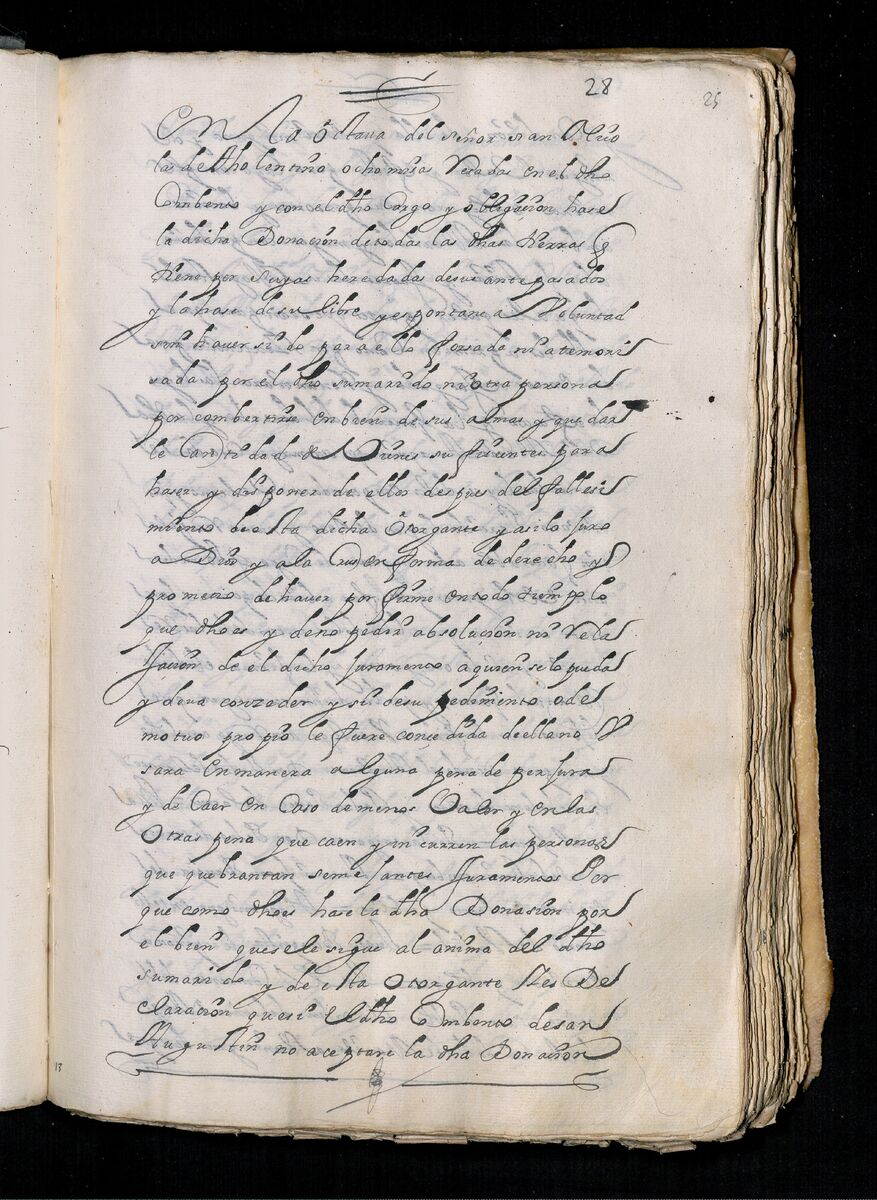 28
25
En la octava del señor san Nico
las de tholentino ocho misas Resadas en el dho
Combento y con el dho Cargo y obligacion hase
la dicha Donacion de todas las dhas tierras q
tiene por suyas heredadas de sus antepasados
y la hase de su libre y espontanea Voluntad
sin haver sido para ello forsada ni atemori
sada por el dho su marido ni otra persona
por combertirse en bien de sus almas y quedar
le Cantidad de Vienes sufisientes para
haser y disponer de ellos despues del fallesi
miento de esta dicha otorgante y asi lo juro
a Dios y a la Cruz en forma de derecho y
prometio de haver por firme en todo tiempo lo
que dho es y de no pedir absolucion ni Rela
jacion de el dicho juramento a quien se lo pueda
y deva conzeder y si de su pedimento o de
motuo propio le fuere concedida de ella no V
sara en manera alguna pena de perjura
y de Caer en Caso de menos Valer y en las
otras pena que caen y incurren las personas
que quebrantan semejantes juramentos Por
que como dho es hase la dha Donasion por
el bien que se le sigue al anima del dho
su marido y de esta otorgante Yes De
claracion que si el dho Combento de san
Augustin no aceptare la dha Donacion
13